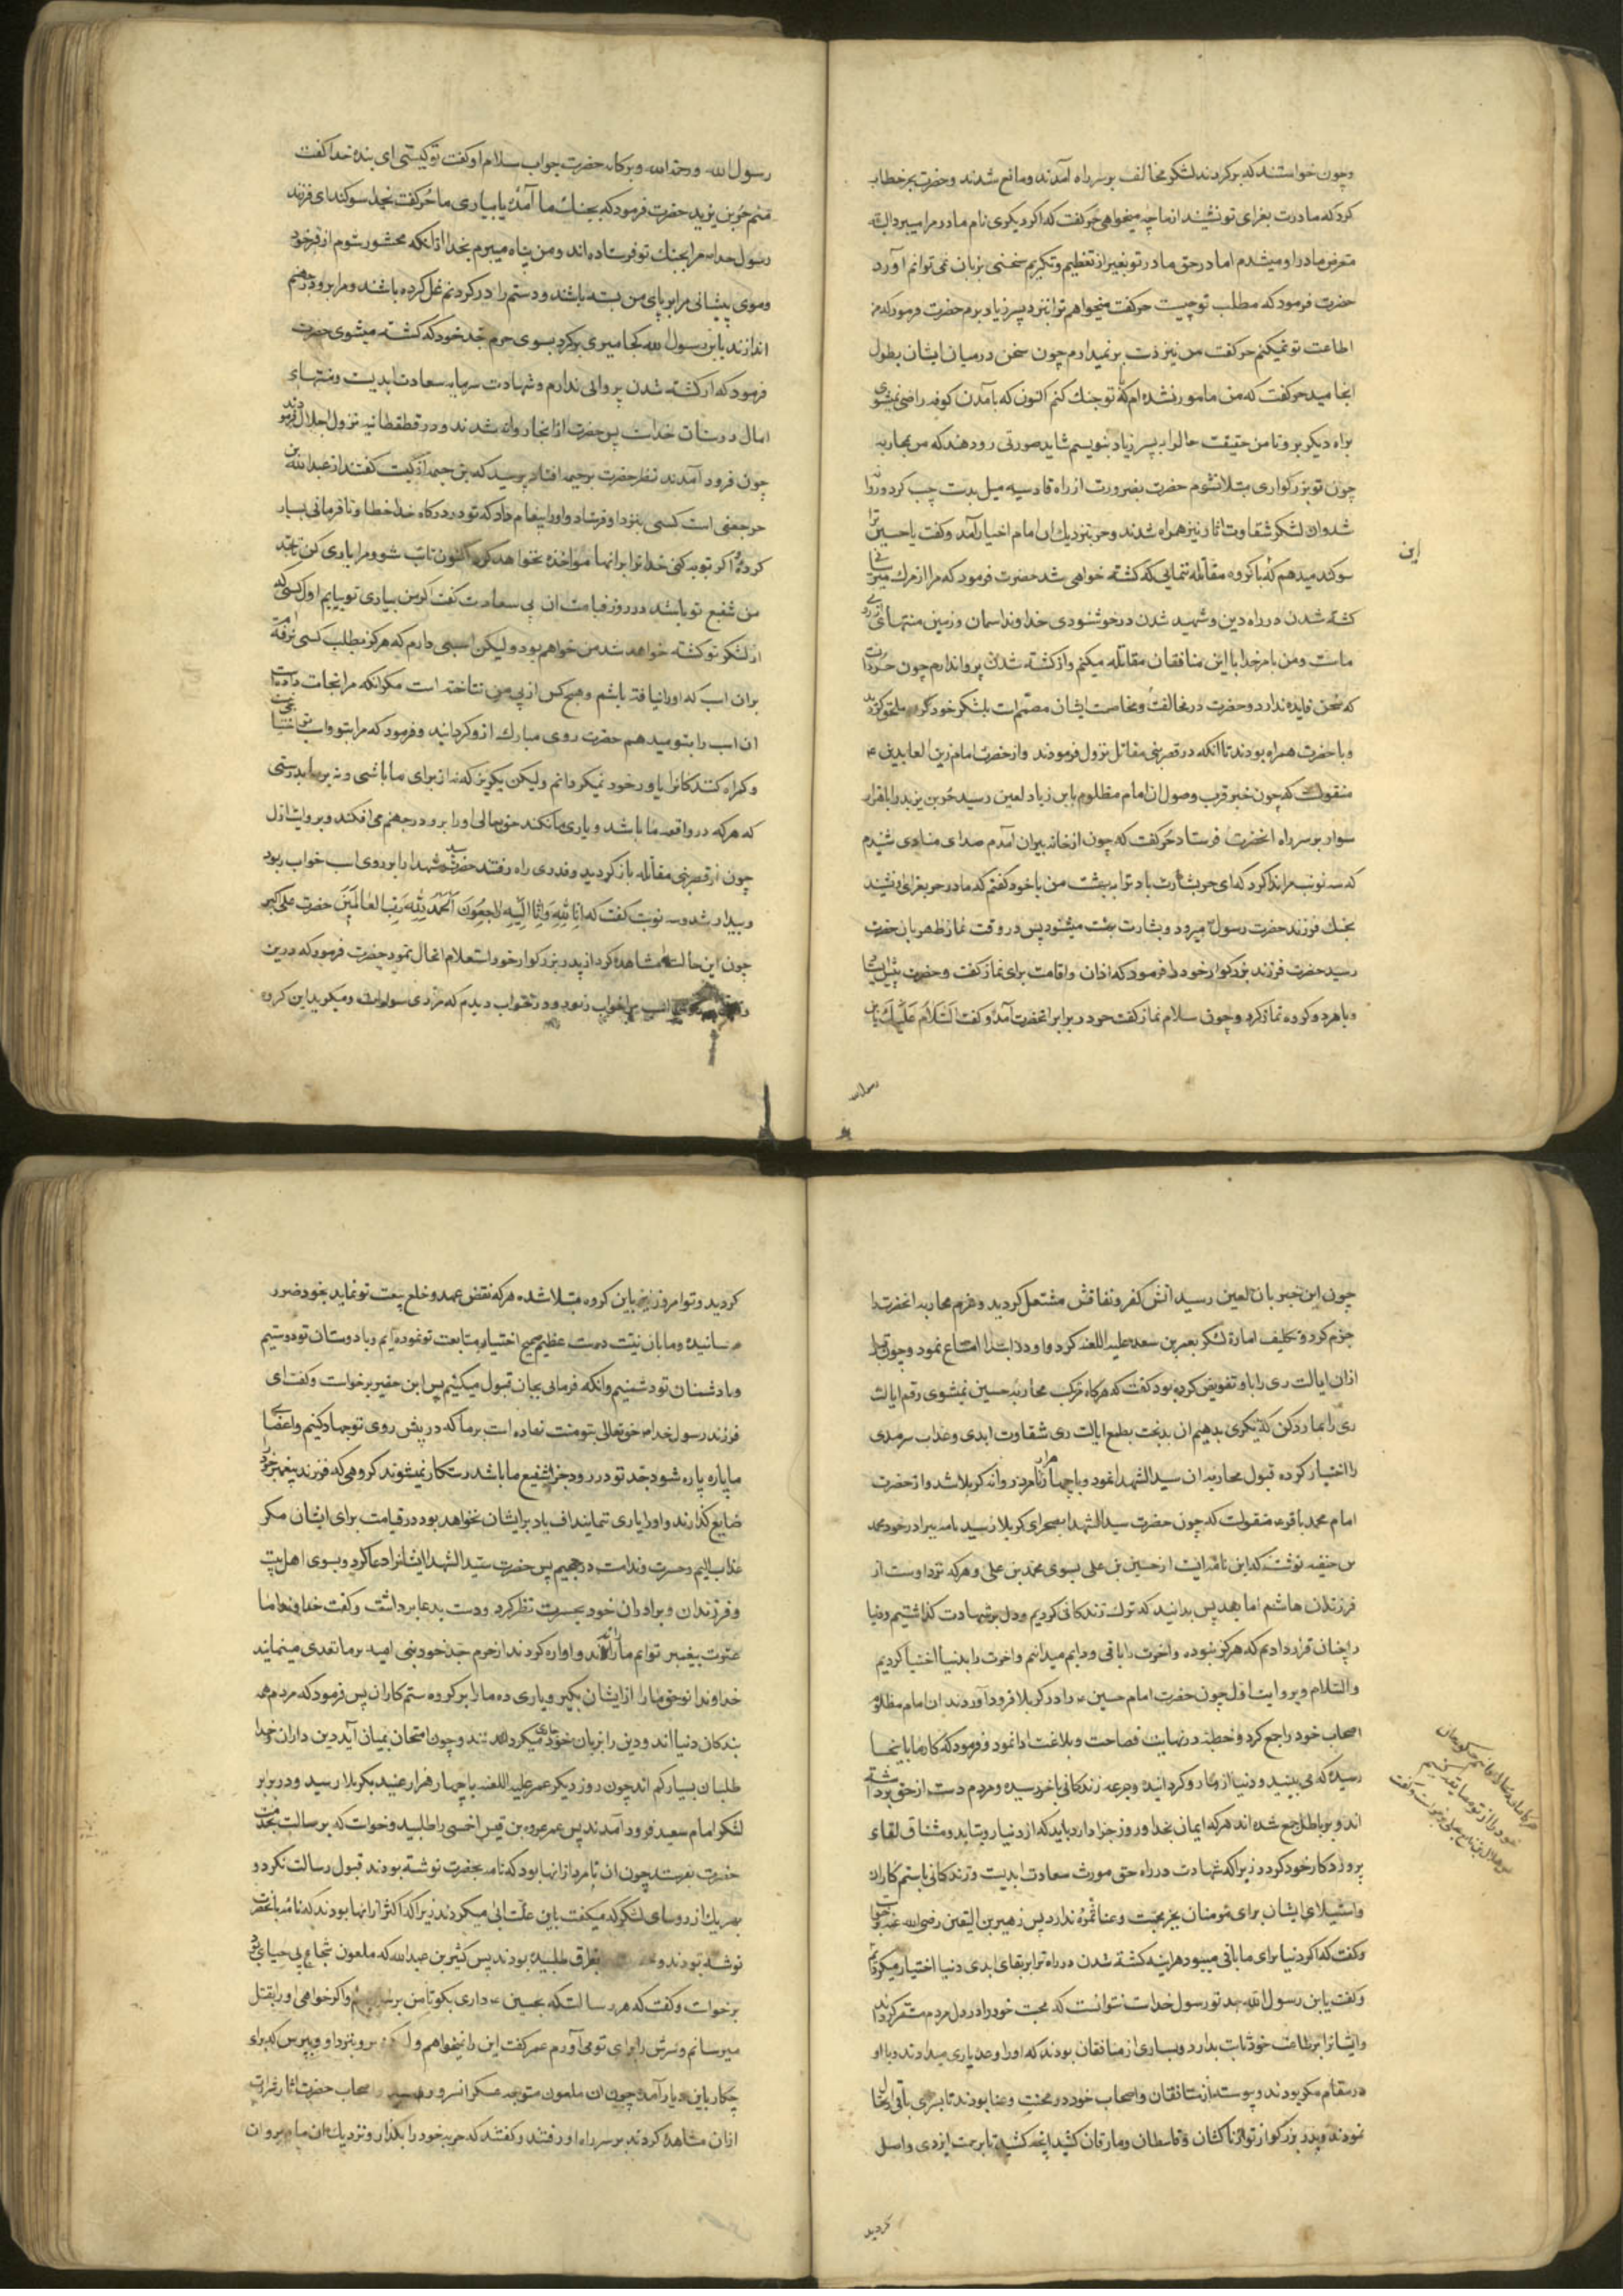 وچون خواستند که برکردند لشکر مخالف بر سر راه آمدند ومانع شدند وحضرت بحر خطاب
کرد که مادرت بعزای تو نشیند از ما چه میخواهی حر کفت که اکر دیکری نام مادر مرا میبرد البته
متعرض مادر او میشدم اما در حق مادر تو بغیر از تعظیم وتکریم سخنی بزبان نمی توانم آورد
حضرت فرمود که مطلب تو چیست حر کفت میخواهم ترا بنزد پسر زیاد برم حضرت فرمود که من
اطاعت تو نمیکنم حر کفت من نیز دست برنمیدارم چون سخن در میان ایشان بطول
انجامید حر کفت که من مامور نشده ام که با تو جنک کنم اکنون که بآمدن کوفه راضی نمیشوی
براه دیکر برو تا من حقیقت حال را به پسر زیاد بنویسم شاید صورتی رو دهد که من بمحاربه
چون تو بزرکواری مبتلا نشوم حضرت بضرورت از راه قادسیه میل بدست چپ کرد وروانه
شد وان لشکر شقاوت اثار نیز همراه شدند وحر بنزدیک ان امام اخیار آمد وکفت یا حسین ترا
سوکند میدهم که با کروه مقاتله ننمائی که کشته خواهی شد حضرت فرمود که مرا از مرک میترسانی
این
کشته شدن در راه دین وشهید شدن در خوشنودی خداوند اسمان وزمین منتهای ارزوی
ماست ومن بامر خدا با این منافقان مقاتله میکنم واز کشته شدن پروا ندارم چون حر دانست
که سخن فایده ندارد وحضرت در مخالفت ومخاصمت ایشان مصمم است بلشکر خود ملحق کردید
وبا حضرت همراه بودند تا انکه در قصر بنی مقاتل نزول فرمودند واز حضرت امام زین العابدین ع
منقولست که چون خبر قرب وصول ان امام مظلوم بابن زیاد لعین رسید حر بن یزید را با هزار
سوار بر سر راه انحضرت فرستاد حر کفت که چون از خانه بیرون آمدم صدای منادی شنیدم
که سه نوبت مرا ندا کرد که ای حر بشارت باد ترا به بهشت من با خود کفتم که مادر حر بعزای او نشیند
بجنک فرزند حضرت رسول میرود وبشارت بهشت میشنود پس در وقت نماز ظهر بان حضرت
رسید حضرت فرزند بزرکوار خود را فرمود که اذان واقامت برای نماز کفت وحضرت پیش ایستاد
وبا هر دو کروه نماز کرد وچون سلام نماز کفت حر در برابر انحضرت آمد وکفت السلام علیک یابن
رسول الله
رسول الله ورحمة الله وبرکاته حضرت جواب سلام او کفت تو کیستی ای بنده خدا کفت
منم حر بن یزید حضرت فرمود که بجنک ما آمدهٔ یا بیاری ما حر کفت بخدا سوکند ای فرزند
رسول خدا مرا بجنک تو فرستاده اند ومن پناه میبرم بخدا از انکه محشور شوم از قبر خود
وموی پیشانی مرا بر پای من بسته باشند ودستم را در کردنم غل کرده باشند ومرا برو در جهنم
اندازند یابن رسول الله کجا میروی برکرد بسوی حرم جد خود که کشته میشوی حضرت
فرمود که از کشته شدن پروائی ندارم وشهادت سرمایه سعادت ابدیت ومنتهای
امال دوستان خداست پس حضرت از انجا روانه شدند ودر قطقطانیه نزول اجلال فرمودند
چون فرود آمدند نظر حضرت بر خیمه افتاد پرسید که این خیمه از کیست کفتند از عبدالله بن
حر جعفی است کسی بنزد او فرستاد واورا پیغام داد که تو در درکاه خدا خطا ونافرمانی بسیار
کردهٔ اکر توبه نکنی خدا ترا برانها مواخذه خواهد کرد اکنون تائب شو ومرا یاری کن تا جد
من شفیع تو باشد در روز قیامت ان بی سعادت کفت اکر من بیاری تو بیایم اول کسی که
از لشکر تو کشته خواهد شد من خواهم بود ولیکن اسبی دارم که هرکز بطلب کسی نرفته ام
بران اسب که اورا نیافته باشم وهیچ کس از پی من نتاخته است مکر انکه مرا نجات داده است
ان اسب را بتو میدهم حضرت روی مبارک ازو کردانید وفرمود که مرا بتو واسب تو احتیاجی نیست
وکمراه کنندکانرا یاور خود نمیکردانم ولیکن بکریز که نه از برای ما باشی ونه بر ما بدرستی
که هرکه در واقعه ما باشد ویاری ما نکند حق تعالی اورا برو در جهنم می افکند وبروایت اول
چون از قصر بنی مقاتل بار کردید وقدری راه رفتند حضرت سید شهدا را بر روی اسب خواب ربود
وبیدار شد وسه نوبت کفت که انا لله وانا الیه راجعون الحمد لله رب العالمین حضرت علی اکبر
چون این حالت مشاهده کرد از پدر بزرکوار خود استعلام انحال نمود حضرت فرمود که درین
مرا خواب ربود ودر خواب دیدم که مردی سوار است ومیکوید این کروه
چون این خبر بان لعین رسید اتش کفر ونفاقش مشتعل کردید وعزم محاربه انحضرت را
جزم کرد وتکلیف امارة لشکر بعمر بن سعد علیه اللعنه کرد واو در ابتدا امتناع نمود وچون قبل
ازان ایالت ری را باو تفویض کرده بود کفت که هرکاه مرتکب محاربه حسین نمیشوی رقم ایالت
ری را بما رد کن که بدیکری بدهیم ان بدبخت بطمع ایالت ری شقاوت ابدی وعذاب سرمدی
را اختیار کرده قبول محاربه ان سید الشهدا نمود وبا چهار هزار نامرد روانه کربلا شد واز حضرت
امام محمد باقر ع منقولست که چون حضرت سید الشهدا بصحرای کربلا رسید نامه ببرادر خود محمد
بن حنفیه نوشت که این نامه ایست از حسین بن علی بسوی محمد بن علی وهرکه نزد اوست از
فرزندان هاشم اما بعد پس بدانید که ترک زندکانی کردیم ودل بر شهادت کذاشتیم ودنیا
را چنان قرار دادیم که هرکز نبوده واخرت را باقی ودایم میدانیم واخرت را بدنیا اختیار کردیم
والسلام وبروایت اول چون حضرت امام حسین ع را در کربلا فرود آوردند ان امام مظلوم
اصحاب خود را جمع کرد وخطبهٔ در نهایت فصاحت وبلاغت ادا نمود وفرمود که کار ما باینجا
رسیده که می بینید ودنیا از ما رو کردانیده وجرعه زندکانی باخر رسیده ومردم دست از حق برداشته
اند وبر باطل جمع شده اند هرکه ایمان بخدا وروز جزا دارد باید که از دنیا رو بتابد ومشتاق لقاء
پروردکار خود کردد زیرا که شهادت در راه حق مورث سعادت ابدیت وزندکانی با ستمکاران
واستیلای ایشان برای مومنان بجز محنت وعنا ثمرهٔ ندارد پس زهیر بن القین رضی الله عنه برخواست
وکفت که اکر دنیا برای ما باقی میبود هراینه کشته شدن در راه ترا بر بقای ابدی دنیا اختیار میکردیم
وکفت یابن رسول الله جد تو رسول خداست نتوانست که محبت خود را در دل مردم مستقر کرداند
وایشانرا بر طاعت خود ثابت بدارد وبسیاری از منافقان بودند که اورا وعده یاری میدادند وبا او
در مقام مکر بودند وپیوسته از منافقان واصحاب خود در محنت وعنا بودند تا بسرای باقی ارتحال
نمودند وپدر بزرکوار تو از ناکثان وقاسطان ومارقان کشید انچه کشید تا برحمت ایزدی واصل
کردید
کردید وتو امروز نیز باین کروه مبتلا شده هرکه نقض عهد وخلع بیعت تو نماید بخود ضرر
رسانیده وما بان نیت درست عظیم صحیح اختیار متابعت تو نموده ایم وبا دوستان تو دوستیم
وبا دشمنان تو دشمنیم وانکه فرمائی بجان قبول میکنیم پس ابن حضیر برخواست وکفت ای
فرزند رسول خدا ص حق تعالی بتو منت نهاده است بر ما که در پیش روی تو جهاد کنیم واعضای
ما پاره پاره شود جد تو در روز جزا شفیع ما باشد رستکار نمیشوند کروهی که فرزند پیغمبر خود را
ضایع کذارند واورا یاری ننمایند اف باد بر ایشان نخواهد بود در قیامت برای ایشان مکر
عذاب الیم وحسرت وندامت در جحیم پس حضرت سید الشهدا ایشانرا دعا کرد وبسوی اهل بیت
وفرزندان وبرادران خود بحسرت نظر کرد ودست بدعا برداشت وکفت خداوندا ما
عترت پیغمبر توایم ما را راندند واواره کردند از حرم جد خود بنی امیه بر ما تعدی مینمایند
خداوندا تو حق ما را از ایشان بکیر ویاری ده ما را بر کروه ستم کاران پس فرمود که مردم همه
بندکان دنیا اند ودین را بر زبان خود جاری میکردانند وچون امتحان بمیان آید دین داران وخدا
طلبان بسیار کم اند چون روز دیکر عمر علیه اللعنه با چهار هزار عنید بکربلا رسید ودر برابر
لشکر امام سعید فرود آمدند پس عمر عروه بن قیس اخسی را طلبید وخواست که برسالت بخدمت
حضرت بفرستد چون ان نامرد ازانها بود که نامه بحضرت نوشته بودند قبول رسالت نکرد و
بهر یک از روسای لشکر که میکفت باین علت ابی میکردند زیرا که اکثر ازانها بودند که نامه بانحضرت
نوشته بودند و بعراق طلبیده بودند پس کثیر بن عبدالله که ملعون شجاع بی حیائی بود
برخواست وکفت که هر رسالت که بحسین ع داری بکو تا من برسانم واکر خواهی اورا بقتل
میرسانم وسرش را برای تو می آورم عمر کفت این را نمیخواهم ولیکن برو بنزد او وبپرس که برای
چکار باین دیار آمده چون ان ملعون متوجه عسکر انسرور کردید اصحاب حضرت اثار شرارت
ازان مشاهده کردند بر سر راه او رفتند وکفتند که حربه خود را بکذار ونزدیک ان امام برو ان